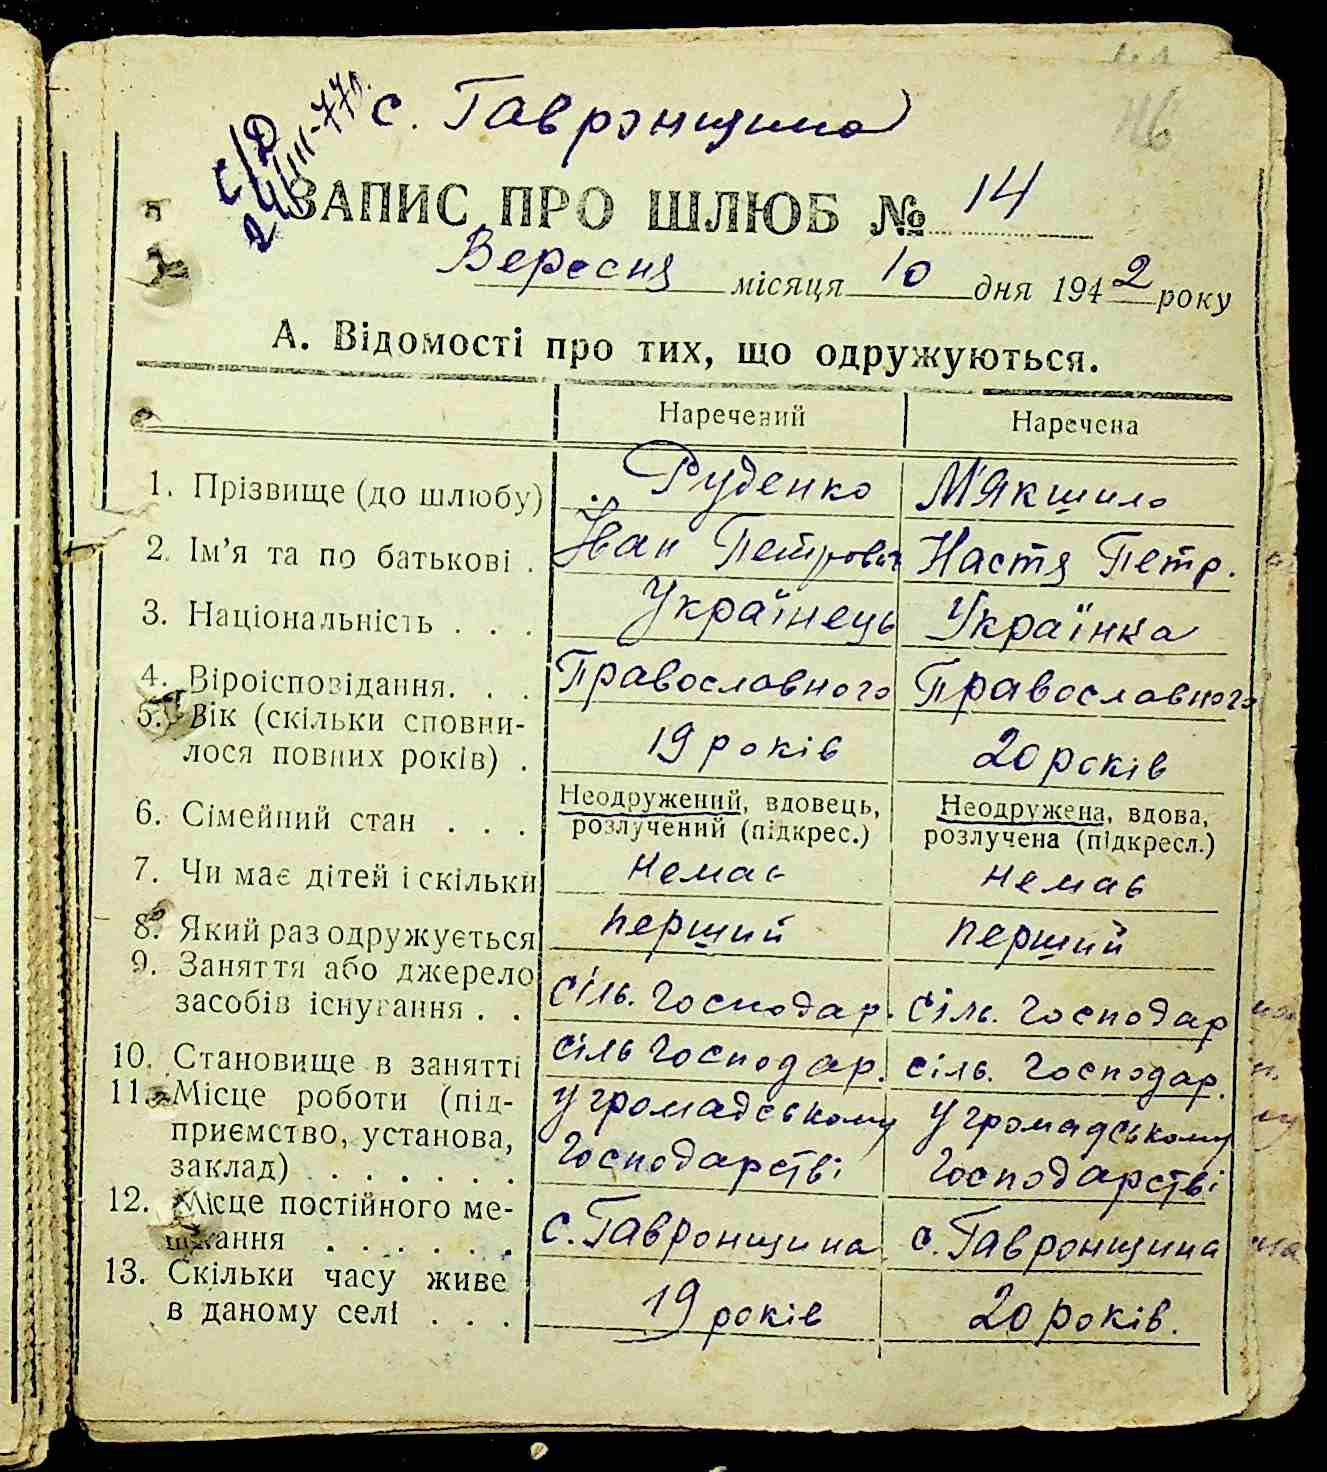 с. Гавронщина
С/Д
46
ЗАПИС ПРО ШЛЮБ № 14
Вересня місяця 10 дня 1942 року
А. Відомості про тих, що одружуються.
Наречений Наречена
1. Прізвище (до шлюбу) Руденко М'якшило
2. Ім'я та по батькові . Іван Петрович Настя Петр.
3. Національність . . . Українець Українка
4. Віроісповідання. . . Православного Православного
5. Вік (скільки сповни-
лося повних років) . 19 років 20 років
6. Сімейний стан . . . Неодружений, вдовець, розлучений (підкрес.) Неодружена, вдова, розлучена (підкресл.)
7. Чи має дітей і скільки немає немає
8. Який раз одружується перший перший
9. Заняття або джерело
засобів існування . . сіль. господар. сіль. господар
10. Становище в занятті сіль господар. сіль. господар.
11. Місце роботи (під-
приємство, установа,
заклад) . . . . . . У громадському господарстві У громадському господарстві
12. Місце постійного ме-
шкання . . . . . . с. Гавронщина с. Гавронщина
13. Скільки часу живе
в даному селі . . . 19 років 20 років.